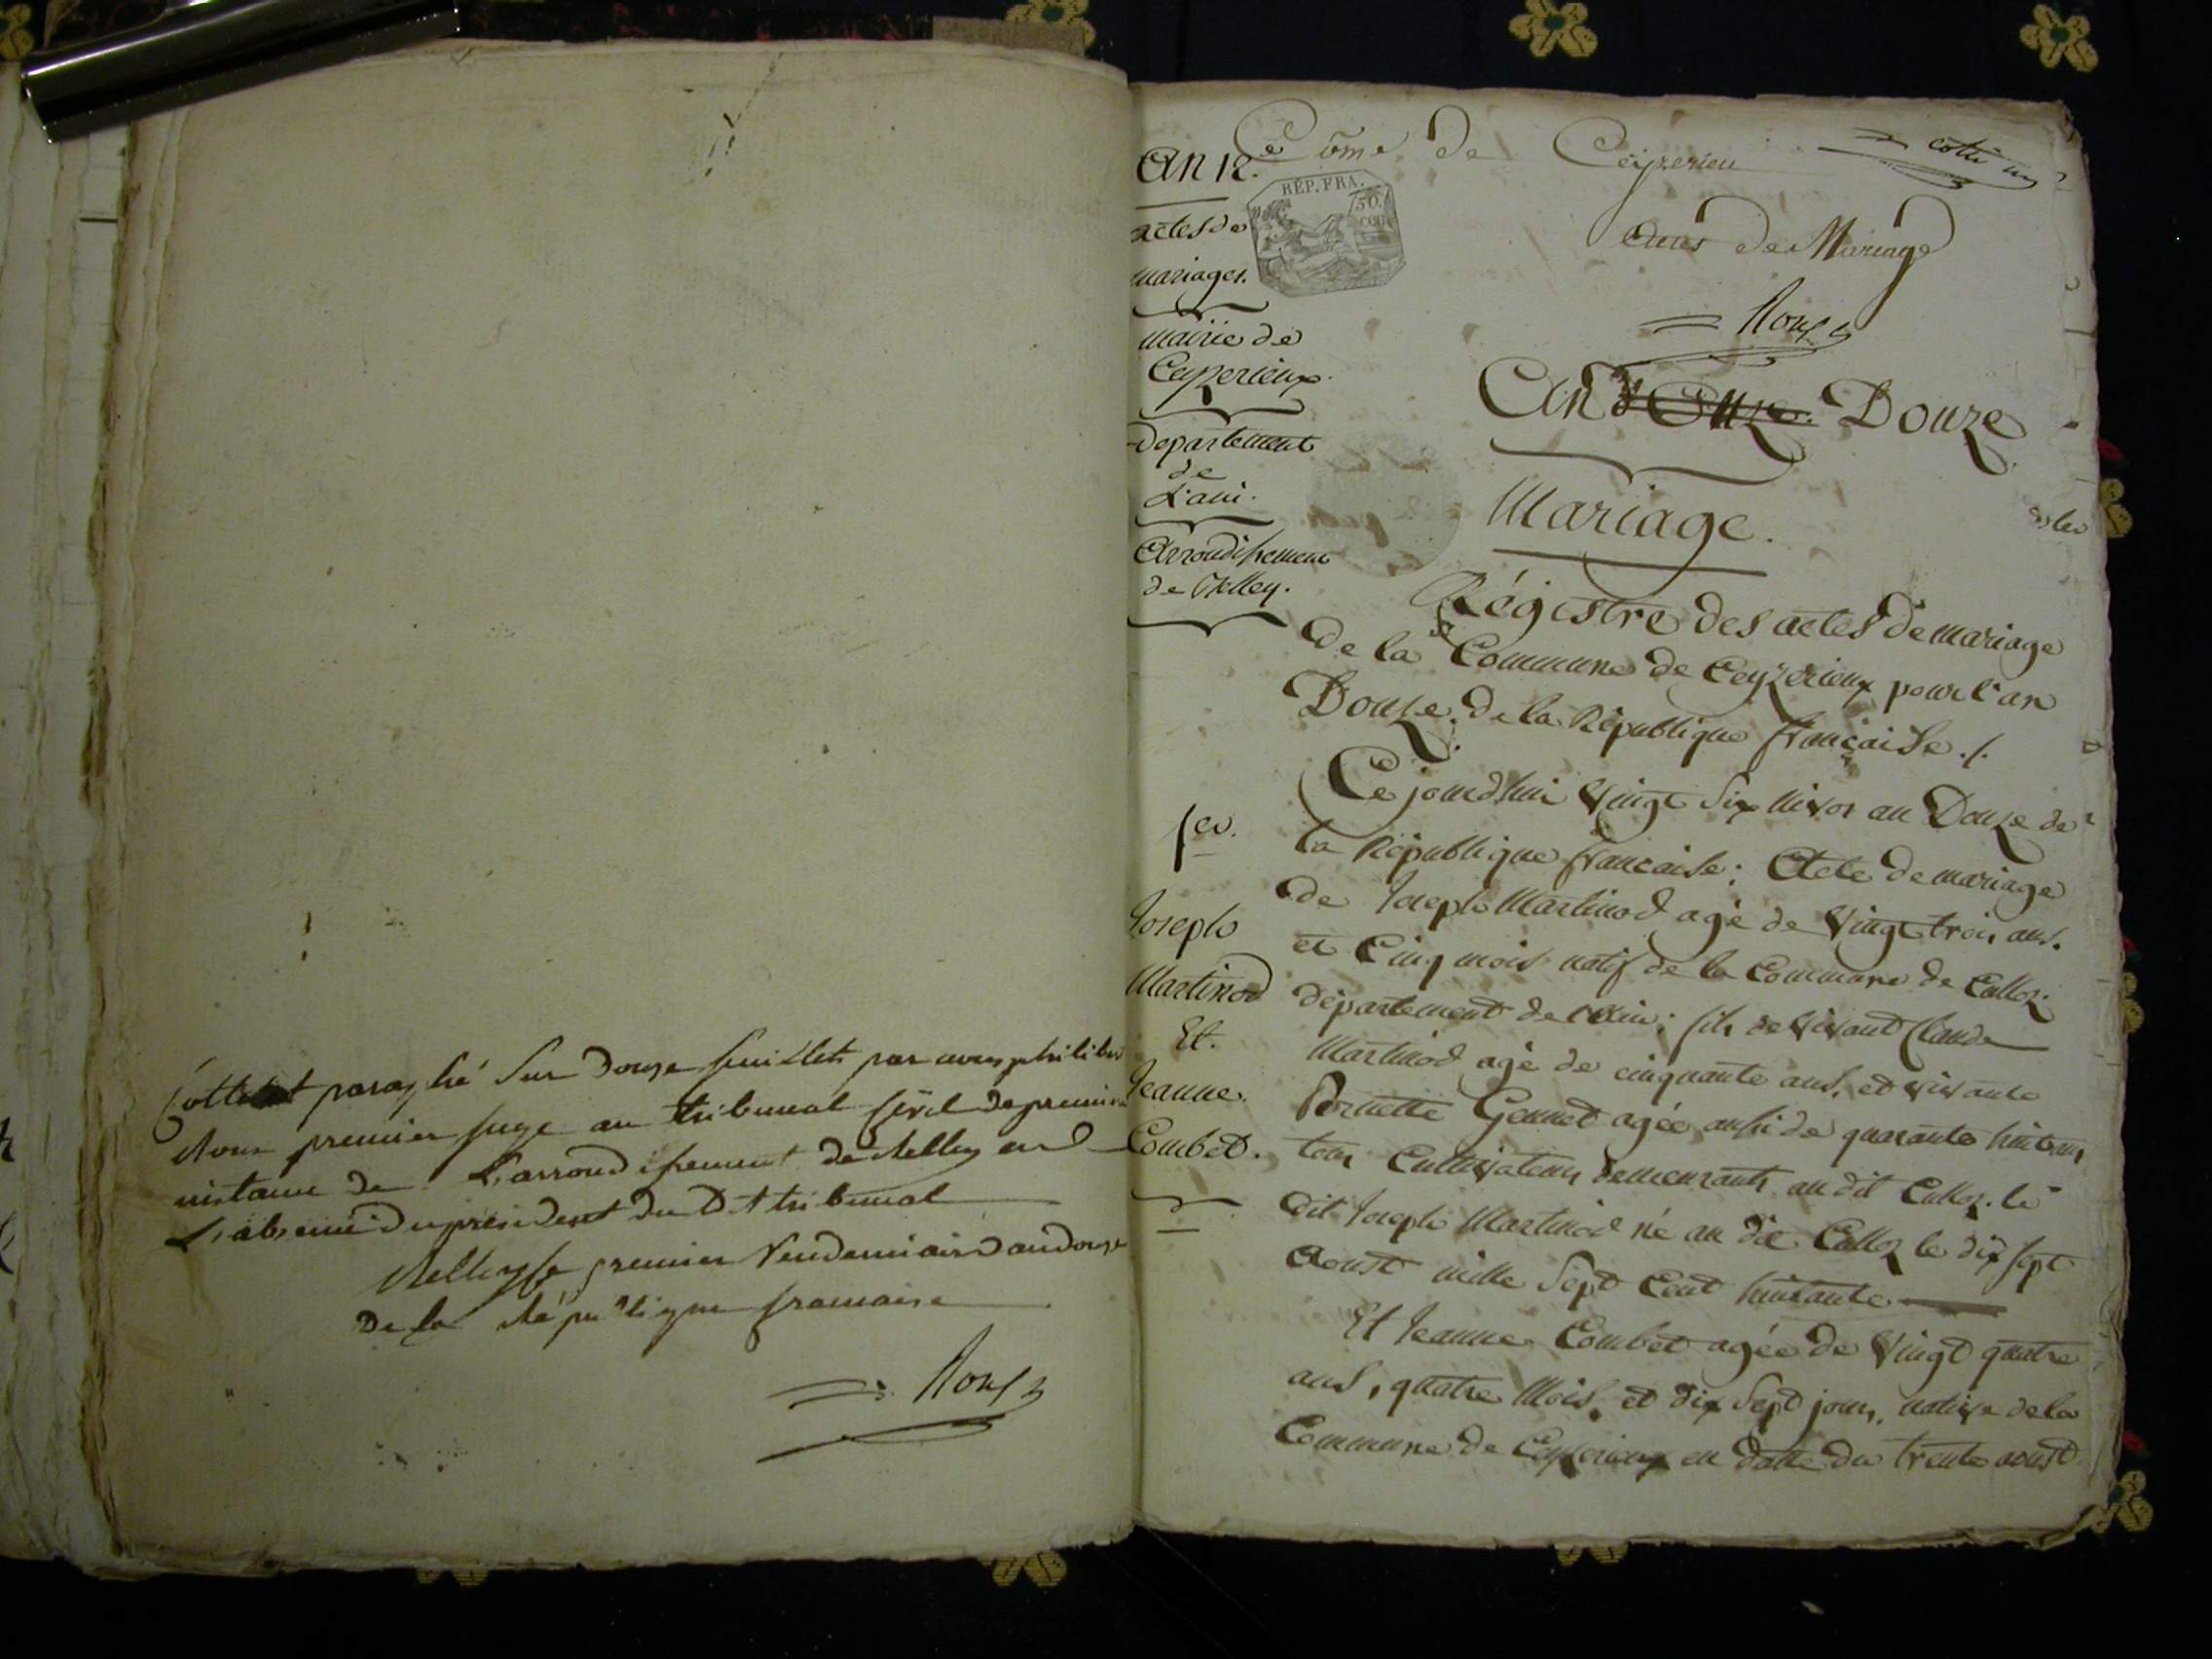 Cotté et paraphé Sur Douze feuillets par nous philibert
Roux premier juge au tribunal Civil de premiere
instance de L'arrondissement de Belley en
L'absence du président du Dt tribunal
Belley le premier Vendemiaire an douze
De la République francaise
Roux
Cne de Ceizerieu
cotte un
Actes de Mariage
Roux
An 12.
RÉP. FRA.
50.
actes de
mariages.
mairie de
Ceyzerieux.
Departement
de
L'ain.
Arrondissement
de Belley.
An d'Onze. Douze
Mariage.
Régistre des actes de mariage
de la Commune de Ceyzerieux pour l'an
Douze de la République française ./.
Ce jourd'hui Vingt Six nivos an Douze de
la République francaise; Acte de mariage
de Joseph Martinod agé de Vingt trois ans.
et Cinq mois natif de la Commune de Culloz
département de l'Ain; fils de vivant Claude
Martinod agé de cinquante ans, et vivante
Pernette Gennet agée aussi de quarante huit ans
tous Cultivateurs demeurants au dit Culloz. le
dit Joseph Martinod né au dit Culloz le dix Sept
Aoust mille Sept Cent huitante
Et Jeanne Combet agée de Vingt quatre
ans, quatre Mois, et dix Sept jours, native de la
Commune de Ceyzerieux en datte du trente aoust
1er.
Joseph
Martinod
Et.
Jeanne.
Combet.